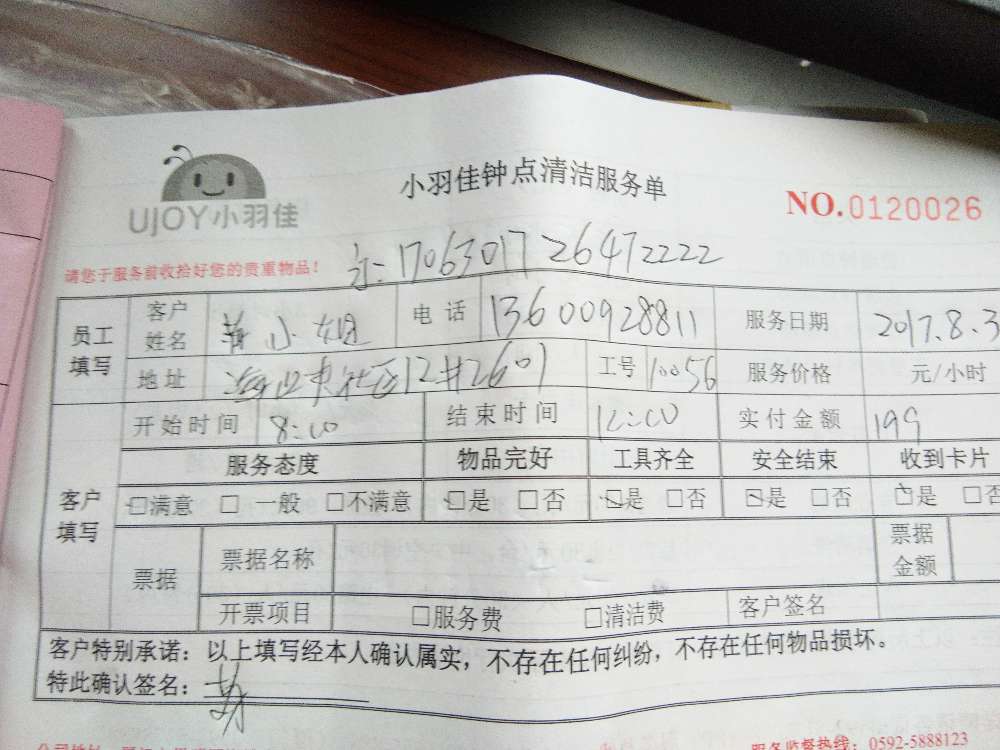 UJOY小羽佳
小羽佳钟点清洁服务单
NO.0120026
请您于服务前收拾好您的贵重物品!
17063017 26472222
员工填写 客户姓名 小姐 电话 13600928811 服务日期 2017.8.3
地址 社区12#2601 工号 10056 服务价格 元/小时
客户填写 开始时间 8:00 结束时间 12:00 实付金额 199
服务态度 物品完好 工具齐全 安全结束 收到卡片
□满意 □一般 □不满意 □是 □否 □是 □否 □是 □否 □是 □否
票据 票据名称 票据金额
开票项目 □服务费 □清洁费 客户签名
客户特别承诺：以上填写经本人确认属实，不存在任何纠纷，不存在任何物品损坏。
特此确认签名：
服务监督热线：0592-5888123